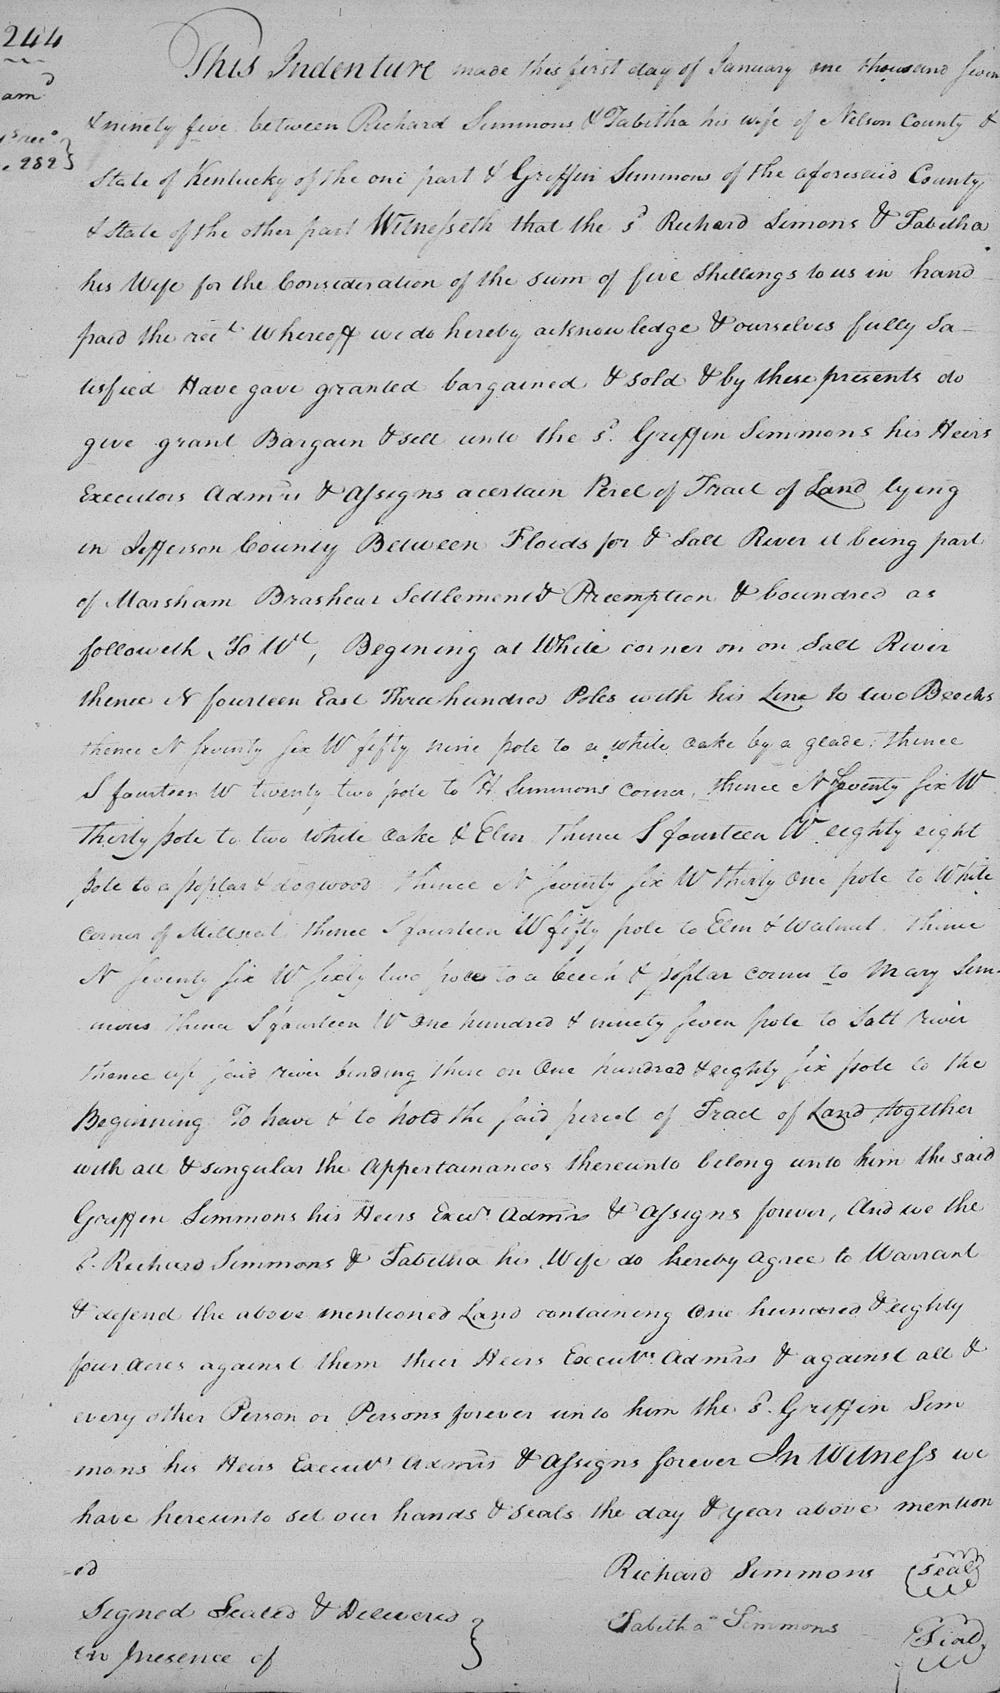 244
This Indenture made this first day of January one thousand seven
& ninety five between Richard Simmons & Tabitha his wife of Nelson County &
State of Kentucky of the one part & Griffin Simmons of the aforesaid County
& State of the other part Witnesseth that the sd Richard Simons & Tabitha
his Wife for the Consideration of the sum of five Shillings to us in hand
paid the rect Whereoff we do hereby acknowledge & ourselves fully Sa-
tisfied Have gave granted bargained & sold & by these presents do
give grant Bargain & sell unto the sd. Griffin Simmons his Heirs
Executors Admrs & Assigns a certain Percel of Tract of Land lying
in Jefferson County Between Floids for & Salt River it being part
of Marsham Brashear Settlement & Preemption & boundred as
followeth, To Wt, Begining at White corner on on Salt River
thence N fourteen East Three hundred Poles with his Line to two Beechs
thence N seventy six W fifty nine pole to a white oake by a glade; thence
S fourteen W twenty two pole to H Simmons corner, thence N Seventy six W
thirty pole to two white oake & Elm thence S fourteen W eighty eight
pole to a poplar & dogwood thence N seventy six W thirty one pole to White
corner of Millseat thence S fourteen W fifty pole to Elm & Walnut thence
N seventy six W sixty two pole to a beech & poplar corner to Mary Sim-
mons thence S fourteen W One hundred & ninety seven pole to Salt river
thence up said river binding there on One hundred & eighty six pole to the
Beginning To have & to hold the said percel of Tract of Land together
with all & singular the Appertainances thereunto belong unto him the said
Griffin Simmons his Heirs Execrs Admrs & Assigns forever, And we the
sd. Richard Simmons & Tabitha his Wife do hereby agree to Warrant
& defend the above mentioned Land containing One hundred & eighty
four Acres against them their Heirs Executrs Admrs & against all &
every other Person or Persons forever unto him the sd. Griffin Sim
mons his Heirs Executrs Admrs & Assigns forever In Witness we
have hereunto set our hands & seals the day & year above mention
-ed
Richard Simmons (Seal)
Signed Sealed & Delivered
Tabitha Simmons (Seal)
in presence of